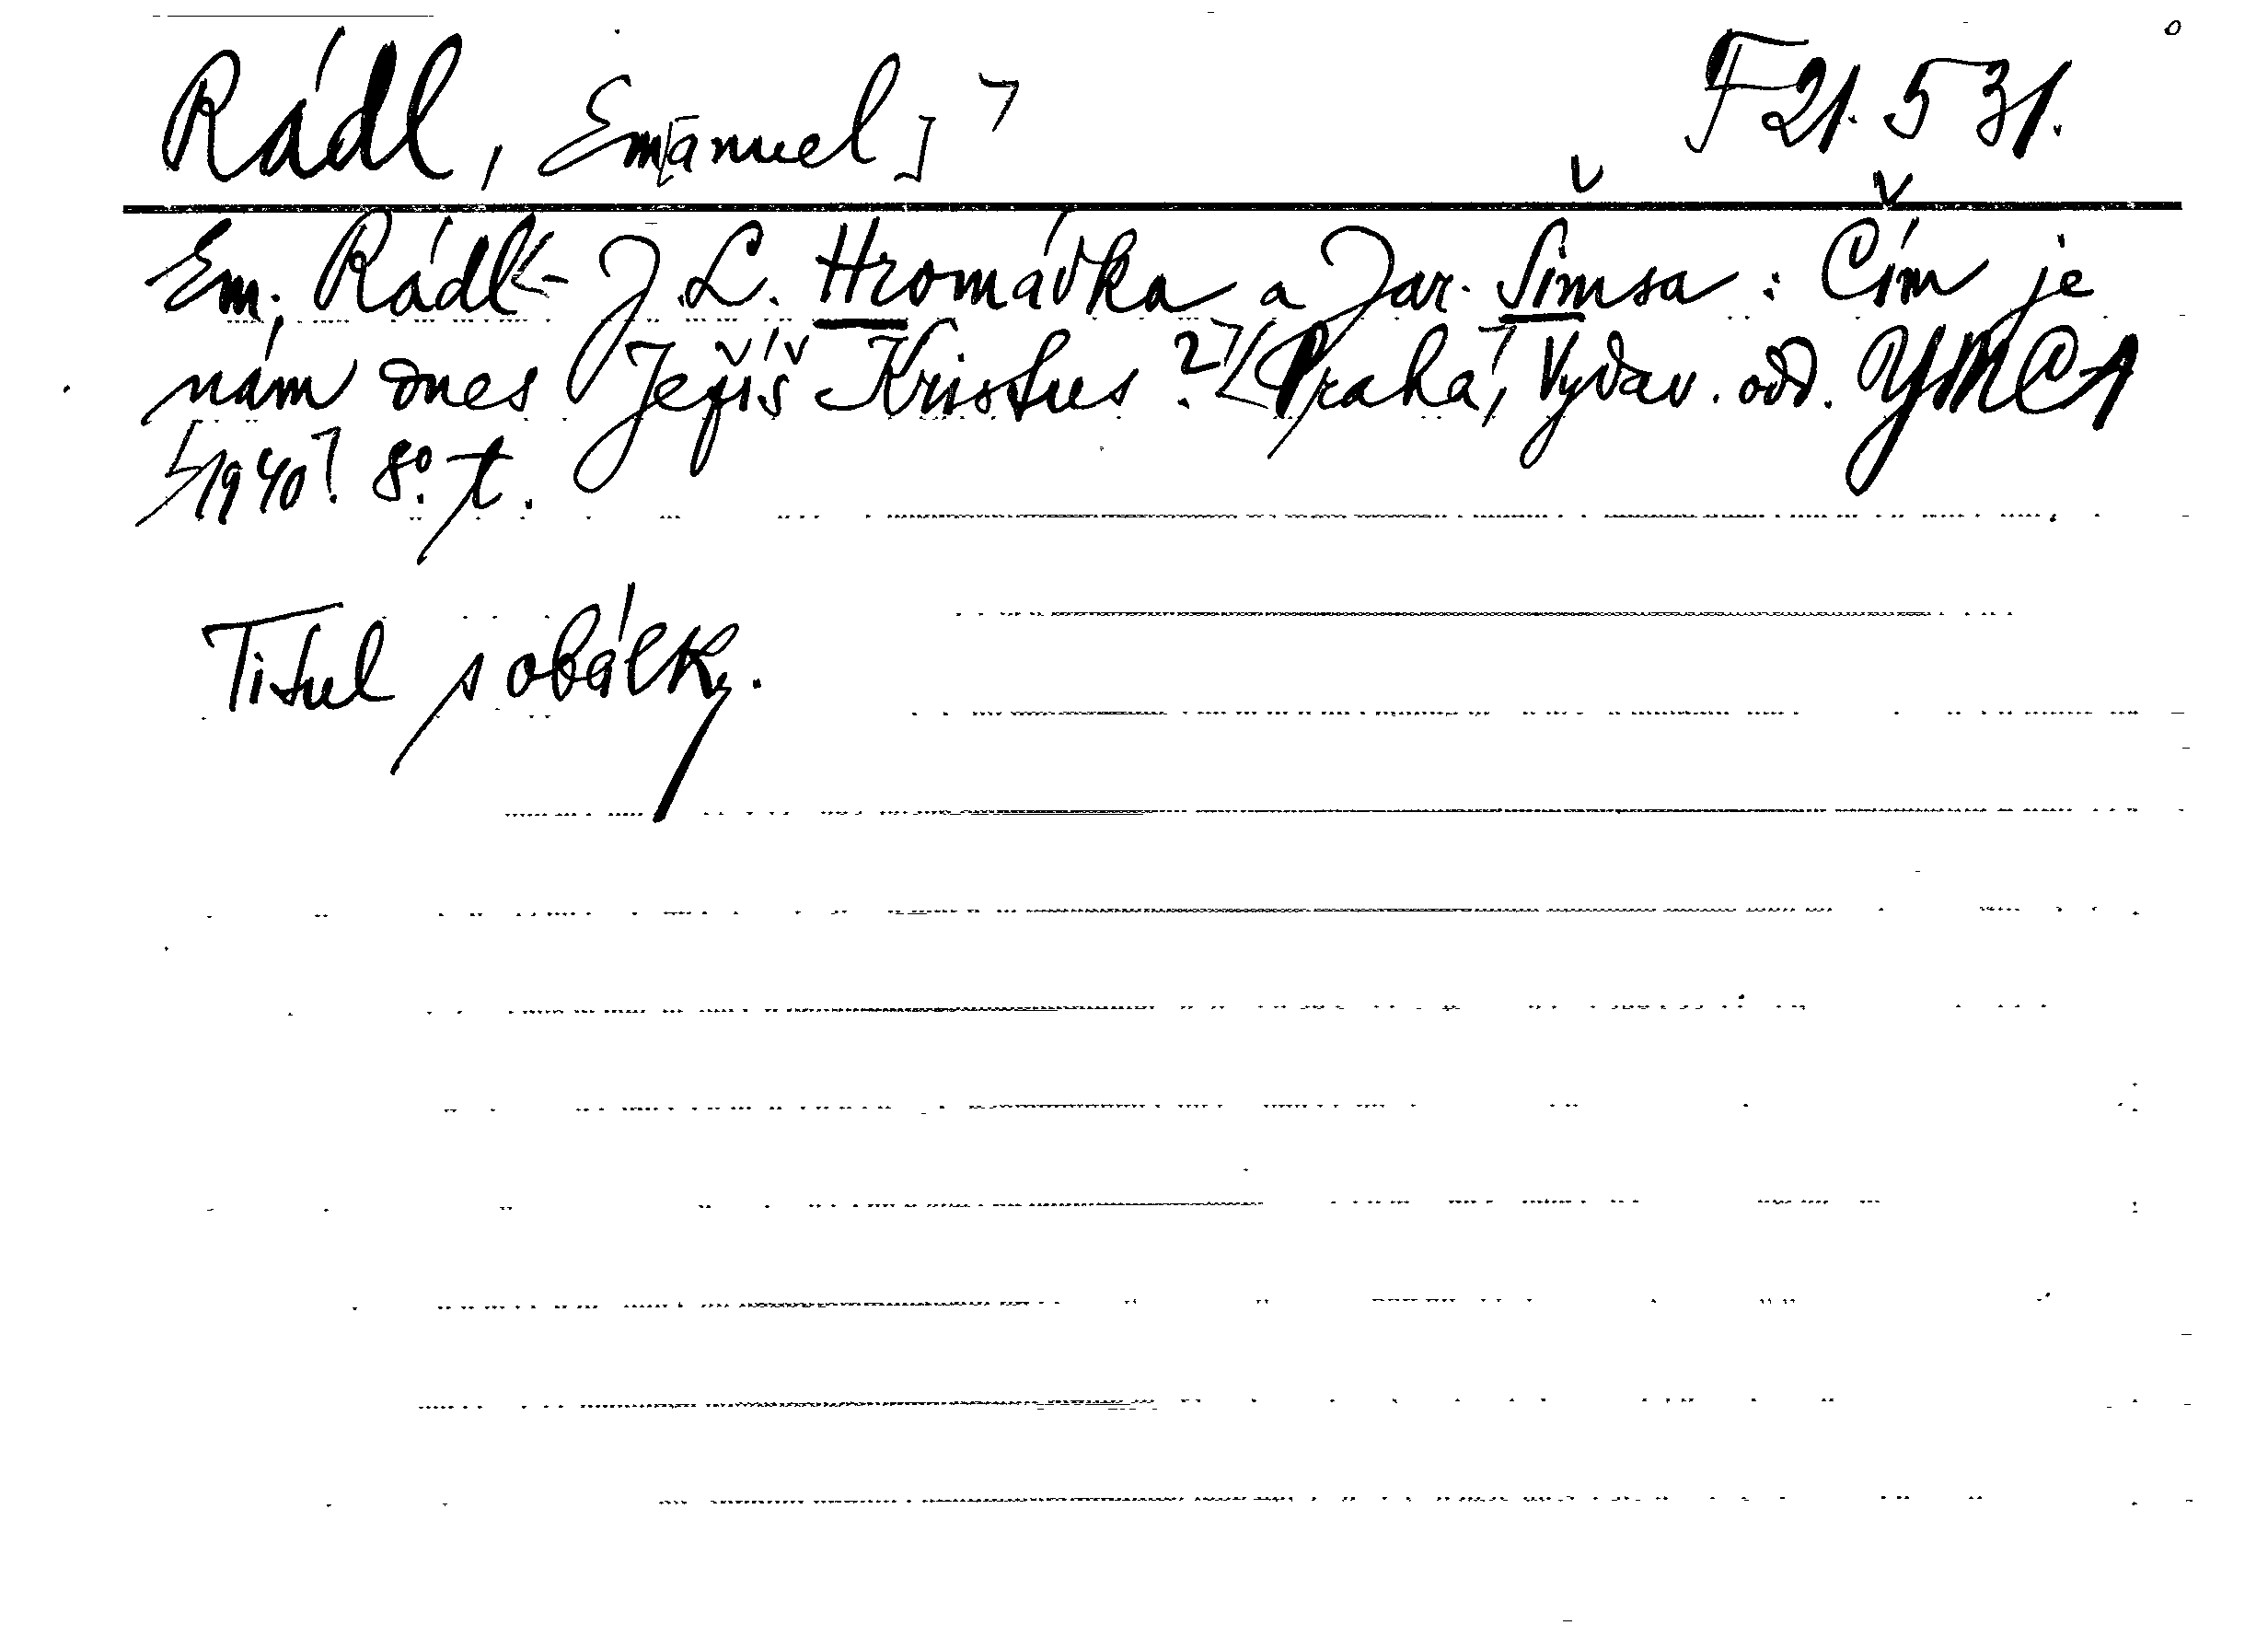 Rádl, Em[anuel] ⌝ F 21.531.
Em. Rádl - J. L. Hromádka a Jar. Šimsa: Čím je
nám dnes Ježíš Kristus?⌝ [Praha], Vydav. odd. YMCA
[1940]. 8°. t.
Titul s obálky.